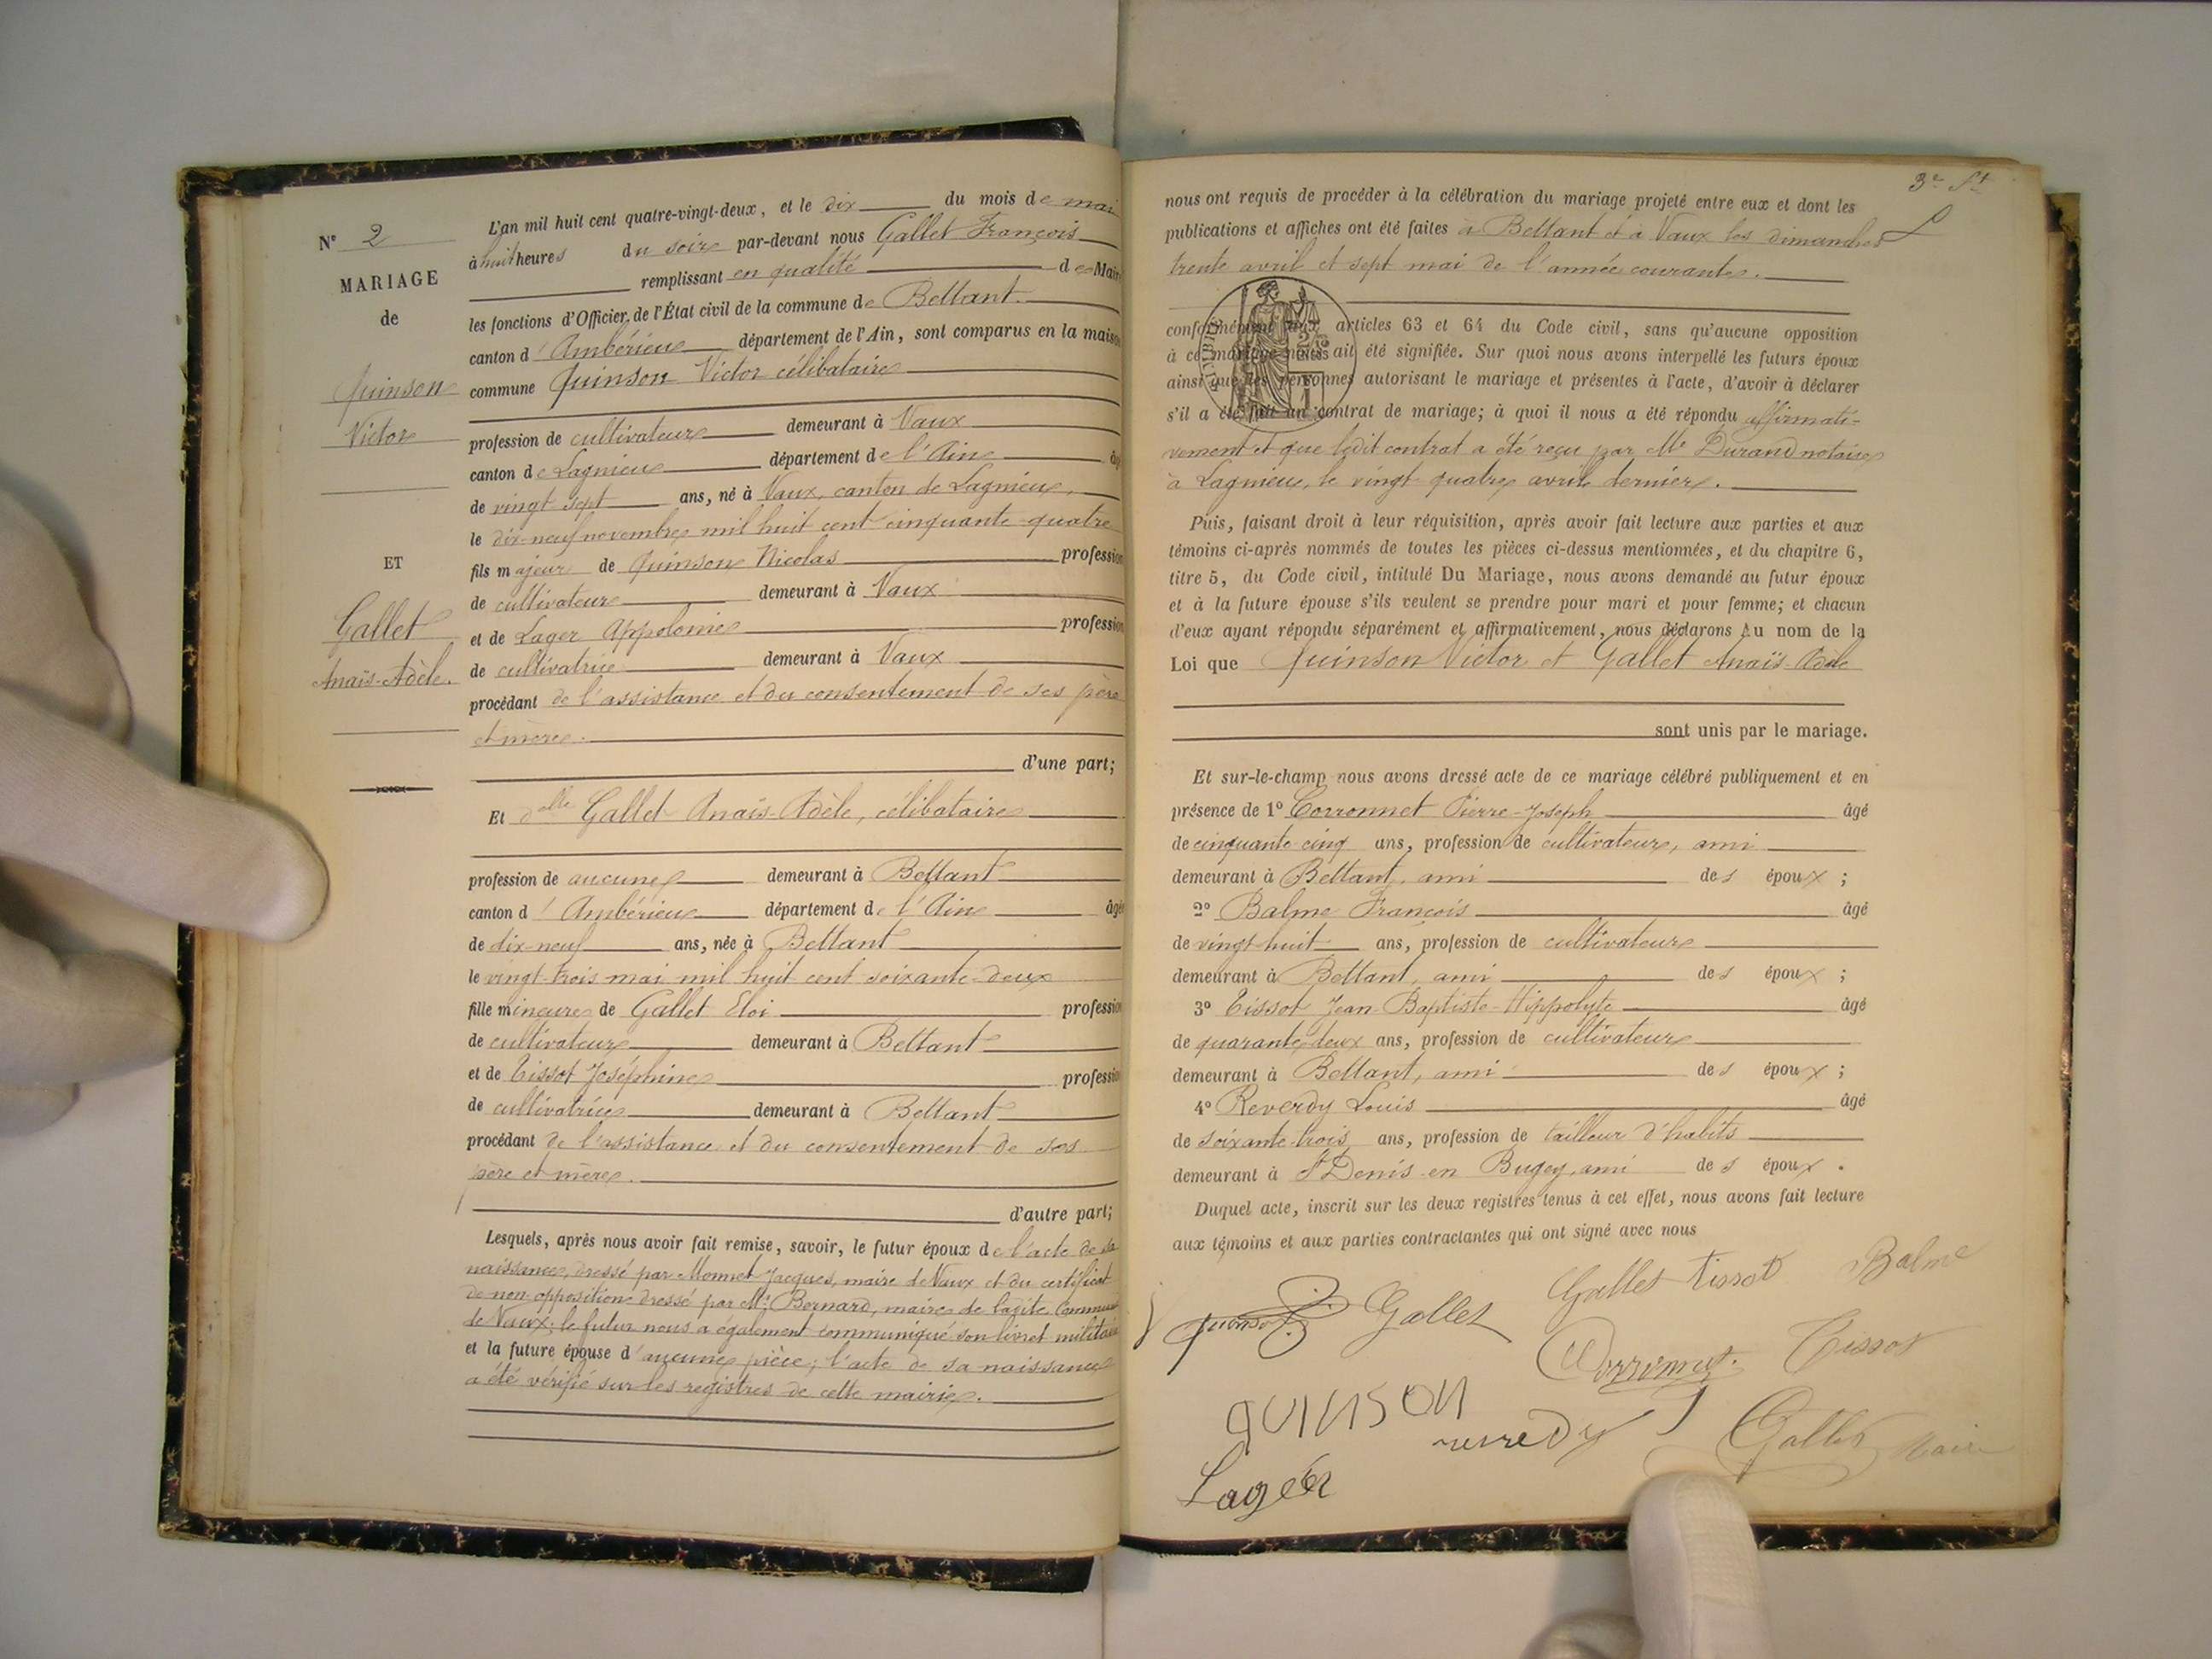 N° 2
MARIAGE
de
Quinson
Victor
ET
Gallet
Anaïs-Adèle.
L'an mil huit cent quatre-vingt-deux, et le dix du mois de mai
à huit heures du soir par-devant nous Gallet François
remplissant en qualité de Maire
les fonctions d'Officier de l'État civil de la commune de Bettant
canton d'Ambérieux département de l'Ain, sont comparus en la maison
commune Quinson Victor célibataire
profession de cultivateur demeurant à Vaux
canton de Lagnieu département de l'Ain âgé
de vingt sept ans, né à Vaux, canton de Lagnieu,
le dix-neuf novembre mil huit cent cinquante-quatre
fils majeur de Quinson Nicolas profession
de cultivateur demeurant à Vaux
et de Lager Appolonie profession
de cultivatrice demeurant à Vaux
procédant de l'assistance et du consentement de ses père
et mère.
d'une part;
Et dlle Gallet Anaïs-Adèle, célibataire
profession de aucune demeurant à Bettant
canton d'Ambérieux département de l'Ain âgée
de dix-neuf ans, née à Bettant
le vingt-trois mai mil huit cent soixante-deux
fille mineure de Gallet Eloi profession
de cultivateur demeurant à Bettant
et de Tissot Joséphine profession
de cultivatrice demeurant à Bettant
procédant de l'assistance et du consentement de ses
père et mère.
d'autre part;
Lesquels, après nous avoir fait remise, savoir, le futur époux de l'acte de sa
naissance, dressé par Monnet Jacques, maire de Vaux et du certificat
de non opposition dressé par Mr Bernard, maire de ladite commune
de Vaux; le futur nous a également communiqué son livret militaire
et la future épouse d'aucune pièce; l'acte de sa naissance
a été vérifié sur les registres de cette mairie.
3e
nous ont requis de procéder à la célébration du mariage projeté entre eux et dont les
publications et affiches ont été faites à Bettant et à Vaux les dimanches
trente avril et sept mai de l'année courante.
conformément aux articles 63 et 64 du Code civil, sans qu'aucune opposition
à ce mariage nous ait été signifiée. Sur quoi nous avons interpellé les futurs époux
ainsi que les personnes autorisant le mariage et présentes à l'acte, d'avoir à déclarer
s'il a été fait un contrat de mariage; à quoi il nous a été répondu affirmati-
vement et que ledit contrat a été reçu par Me Durand notaire
à Lagnieu, le vingt-quatre avril dernier.
Puis, faisant droit à leur réquisition, après avoir fait lecture aux parties et aux
témoins ci-après nommés de toutes les pièces ci-dessus mentionnées, et du chapitre 6,
titre 5, du Code civil, intitulé Du Mariage, nous avons demandé au futur époux
et à la future épouse s'ils veulent se prendre pour mari et pour femme; et chacun
d'eux ayant répondu séparément et affirmativement, nous déclarons Au nom de la
Loi que Quinson Victor et Gallet Anaïs-Adèle
sont unis par le mariage.
Et sur-le-champ nous avons dressé acte de ce mariage célébré publiquement et en
présence de 1° Corronnet Pierre-Joseph âgé
de cinquante cinq ans, profession de cultivateur, ami
demeurant à Bettant, ami des époux ;
2° Balme François âgé
de vingt-huit ans, profession de cultivateur
demeurant à Bettant, ami des époux ;
3° Tissot Jean-Baptiste-Hippolyte âgé
de quarante-deux ans, profession de cultivateur
demeurant à Bettant, ami des époux ;
4° Reverdy Louis âgé
de soixante-trois ans, profession de tailleur d'habits
demeurant à St Denis en Bugey, ami des époux.
Duquel acte, inscrit sur les deux registres tenus à cet effet, nous avons fait lecture
aux témoins et aux parties contractantes qui ont signé avec nous
Gallet tissot Balme
Quinson Gallet
Corronnet Tissot
quinson reverdy
Gallet Maire
Lager